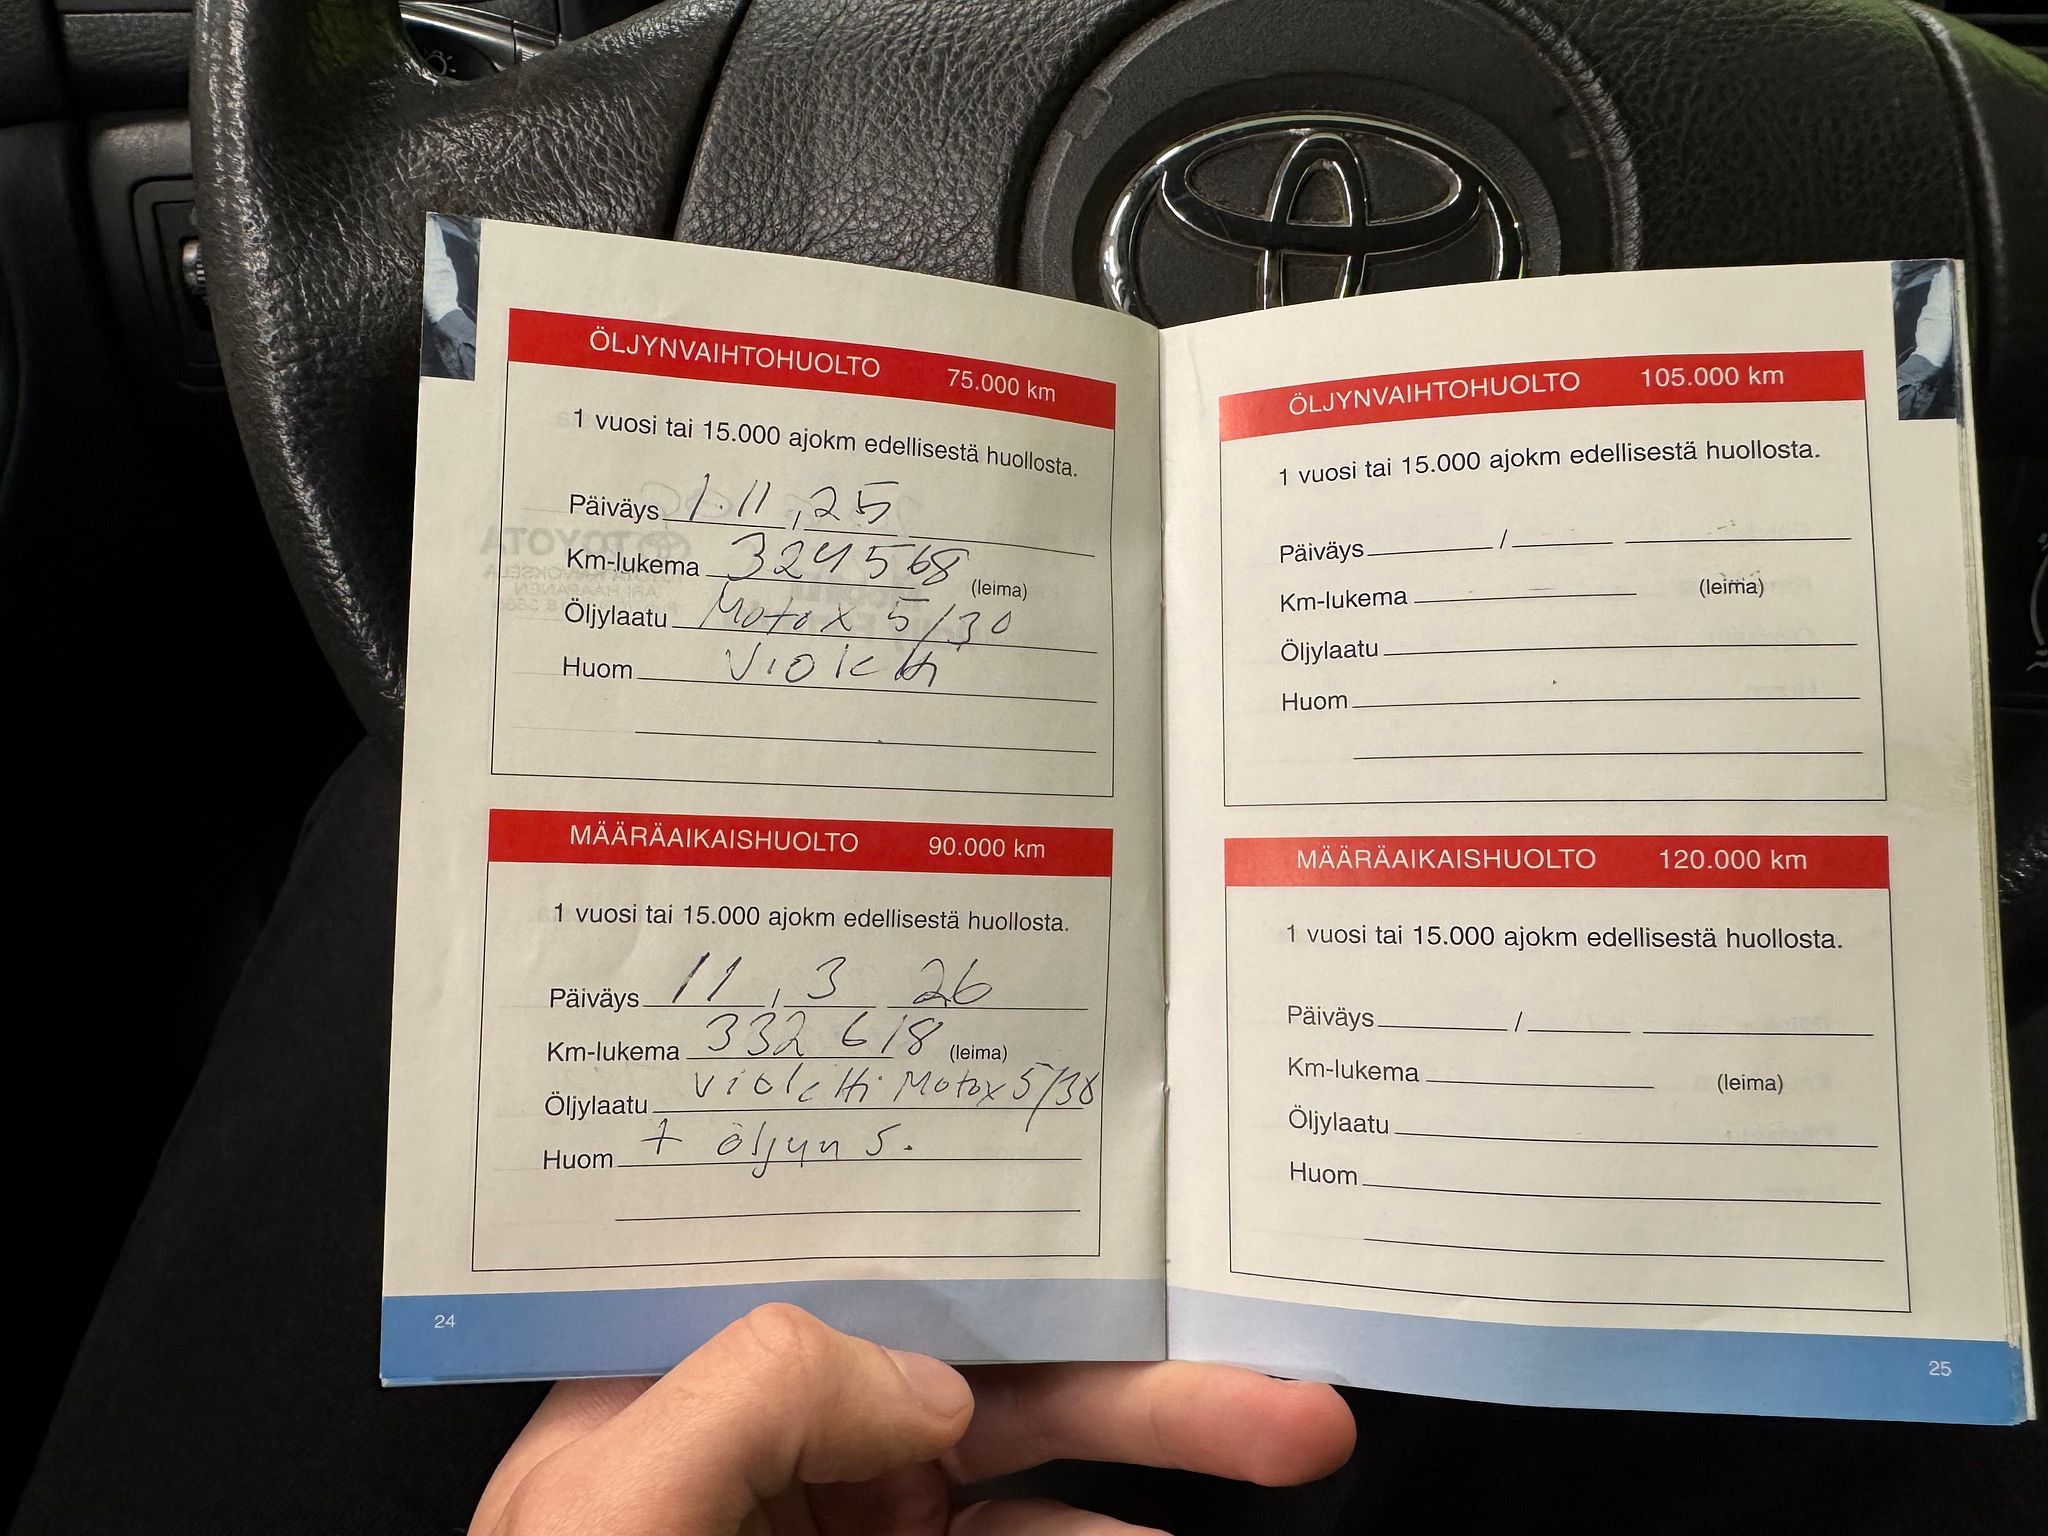 ÖLJYNVAIHTOHUOLTO 75.000 km
1 vuosi tai 15.000 ajokm edellisestä huollosta.
Päiväys 1.11,25
Km-lukema 324568 (leima)
Öljylaatu Motox 5/30
Huom Violetti
MÄÄRÄAIKAISHUOLTO 90.000 km
1 vuosi tai 15.000 ajokm edellisestä huollosta.
Päiväys 11 / 3 26
Km-lukema 332 618 (leima)
Öljylaatu violetti Motox 5/30
Huom + öljyn s.
24
ÖLJYNVAIHTOHUOLTO 105.000 km
1 vuosi tai 15.000 ajokm edellisestä huollosta.
Päiväys /
Km-lukema (leima)
Öljylaatu
Huom
MÄÄRÄAIKAISHUOLTO 120.000 km
1 vuosi tai 15.000 ajokm edellisestä huollosta.
Päiväys /
Km-lukema (leima)
Öljylaatu
Huom
25